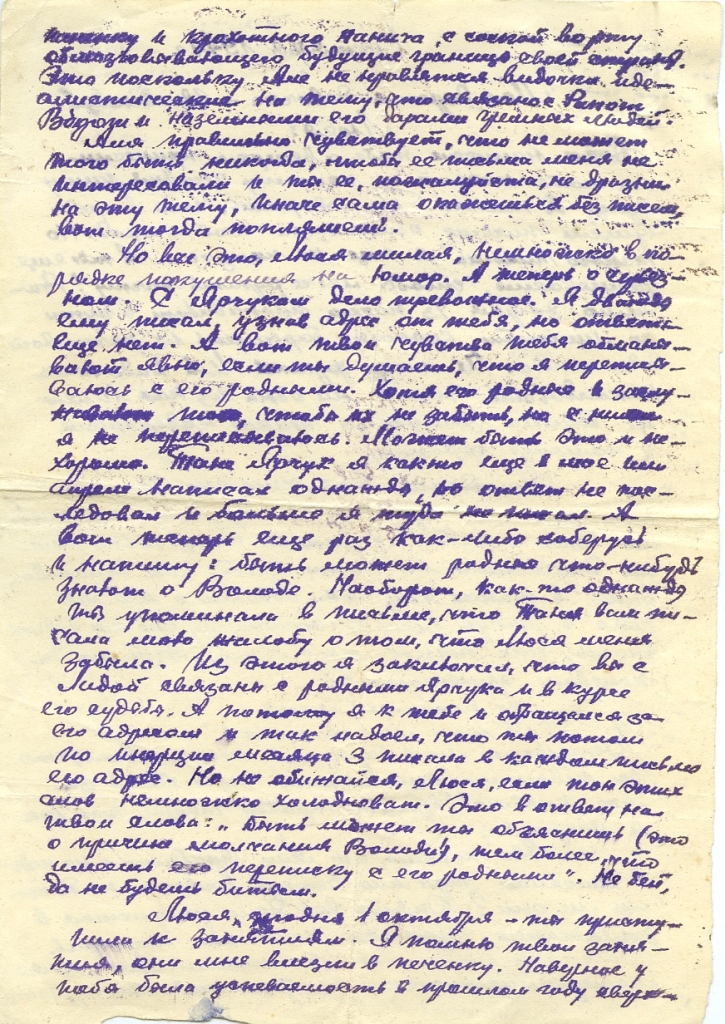 и крохотного магнита, с соской во рту
обмозговывающего будущие границы своей страны.
Это поскольку Ане не нравятся видочки иде-
алистические на тему, что связано с
Богом и наземными его дарами грешных людей.
Аня правильно чувствует, что не может
того быть никогда, чтобы ее письма меня не
интересовали и ты ее, пожалуйста, не дразни
на эту тему, иначе сама окажешься без писем,
вот тогда попляшешь.
Но все это, Люся милая, немножко в по-
рядке покушения на юмор. А теперь о серьез-
ном. С Ярчуком дело тревожное. Я дважды
ему писал, узнав адрес от тебя, но ответа
еще нет. А вот твои чувства тебя обманы-
вают явно, если ты думаешь, что я переписы-
ваюсь с его родными. Хотя его родные и заслу-
живают того, чтобы их не забыть, но с ними
я не переписываюсь. Может быть это и не-
хорошо. Тане Ярчук я как-то еще в мае или
апреле написал однажды, но ответ не пос-
ледовал и больше я туда не писал. А
вот теперь еще раз как-либо соберусь
и напишу: быть может родные что-нибудь
знают о Володе. Наоборот, как-то однажды
ты упоминала в письме, что Таня вам пи-
сала мою жалобу о том, что Люся меня
забыла. Из этого я заключил, что вы с
Лидой связаны с родными Ярчука и в курсе
его судьбы. А потому я к тебе и обращался за
его адресом и так надоел, что ты потом
по инерции месяца 3 писала в каждом письме
его адрес. Но не обижайся, Люся, если тон этих
слов немножко холодноват. Это в ответ на
твои слова: „Быть может ты объяснишь (это
о причине молчания Володи), тем более, что
имеешь его переписку с его родными“. Не бей,
да не будешь битым.
Люся, сегодня 1 октября – ты присту-
пила к занятиям. Я помню твои заня-
тия, они мне влезли в печенку. Наверное у
тебя была успеваемость в прошлом году сверх-